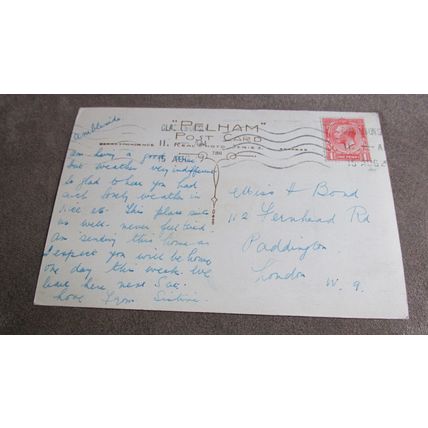 Ambleside
"PELHAM"
POST CARD
REAL PHOTO SERIES
11.
15 AUG
ONE PENNY
am having a good time
but weather very indifferent
so glad to hear you had
such lovely weather in
. This place suits
us well. never feel tired.
am sending this home as
I expect you will be home
one day this week. We
leave here next Sat.
Love from
Miss J Bond
112 Fernhead Rd
Paddington
London
W. 9.